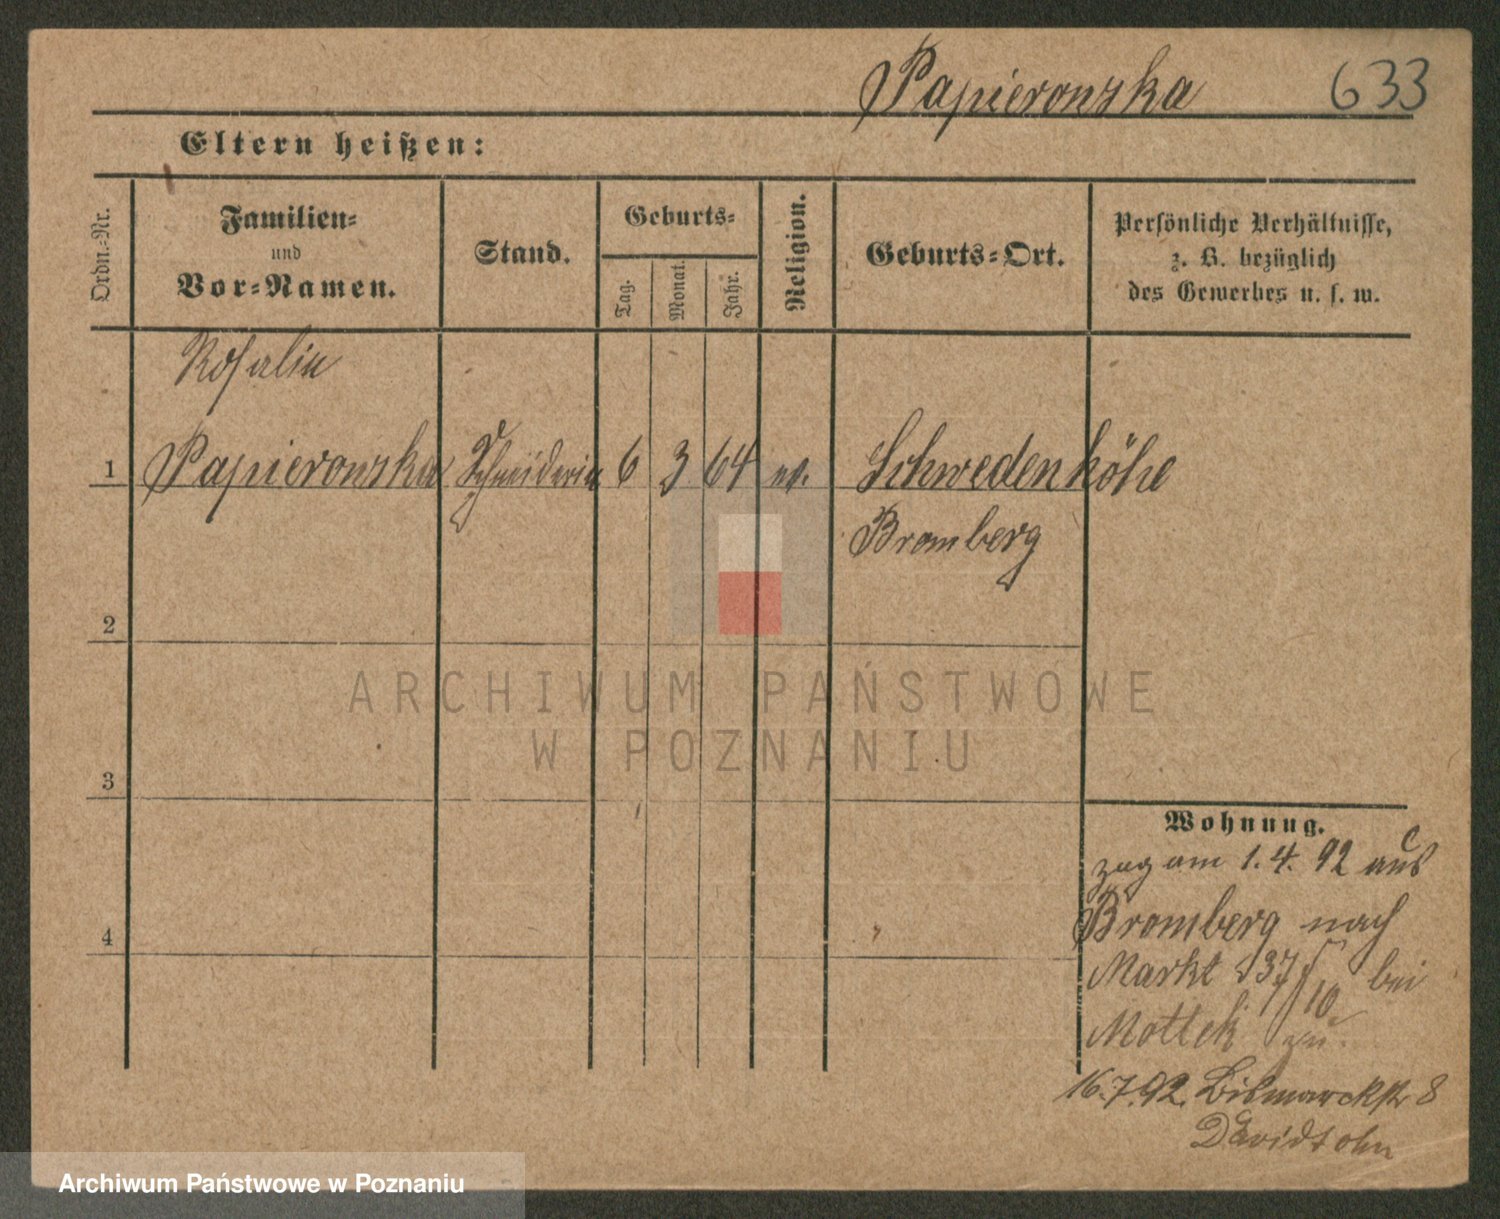 Papierowska 633
Eltern heißen:
Ordn.-Nr.
Familien-
und
Vor-Namen.
Stand.
Geburts-
Tag.
Monat.
Jahr.
Religion.
Geburts-Ort.
Persönliche Verhältnisse,
z. B. bezüglich
des Gewerbes u. s. w.
Rosalie
1 Papierowska Schneiderin 6 3 64 ev. Schwedenhöhe
Bromberg
2
ARCHIWUM PAŃSTWOWE
W POZNANIU
3
Wohnung.
zog am 1.4.92 aus
Bromberg nach
Markt 37 bei
Mottek zu.
16.7.92. Bismarckstr 8
Davidsohn
4
Archiwum Państwowe w Poznaniu